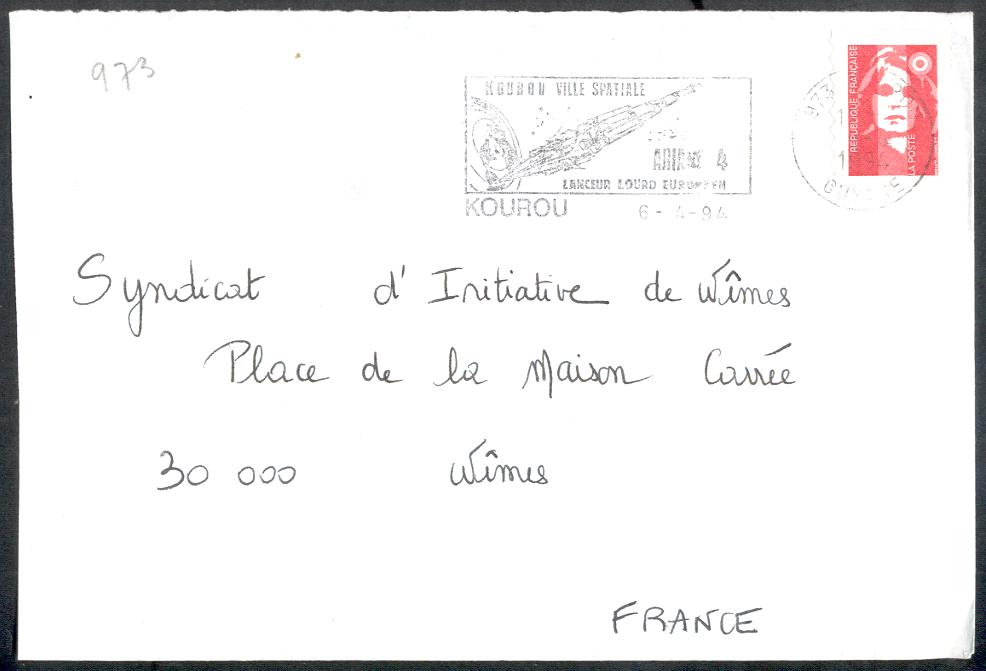 973
KOUROU VILLE SPATIALE
ARIANE 4
LANCEUR LOURD EUROPEEN
KOUROU 6-4-94
973
GUYANE
REPUBLIQUE FRANÇAISE
LA POSTE
Syndicat d'Initiative de Nîmes
Place de la Maison Carrée
30 000 Nîmes
FRANCE